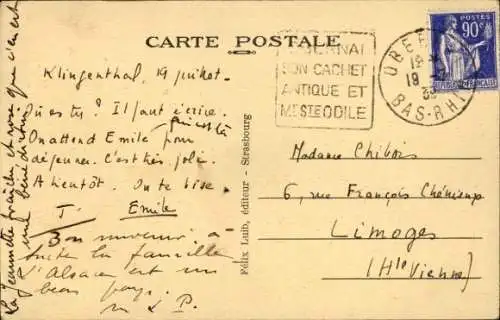 CARTE POSTALE
Klingenthal, 19 juillet.
Où es tu ? Il faut écrire.
On attend Emile pour
déjeuner. C'est très joli.
A bientôt. On te bise.
T. Emile
Bon souvenir à
toute la famille
L'Alsace est un
beau pays.
La Jeannette fraîche et rose que vient
Félix Luib, éditeur - Strasbourg
SON CACHET
ANTIQUE ET
MT STE ODILE
BAS-RHIN
POSTES
90c
Madame Chibois
6, rue François Chénieux
Limoges
(Hte Vienne)